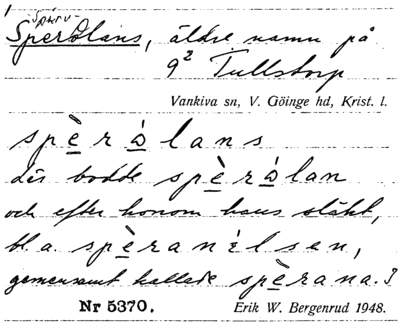 Spèrv-
Sperølans, äldre namn på
9² Tullstorp
Vankiva sn, V. Göinge hd, Krist. l.
spèrɷ̀lans
där bodde spèrɷ̀lan
och efter honom hans släkt,
bl. a. spèranélsen,
gemensamt kallade spèrana. 3
Nr 5370. Erik W. Bergenrud 1948.